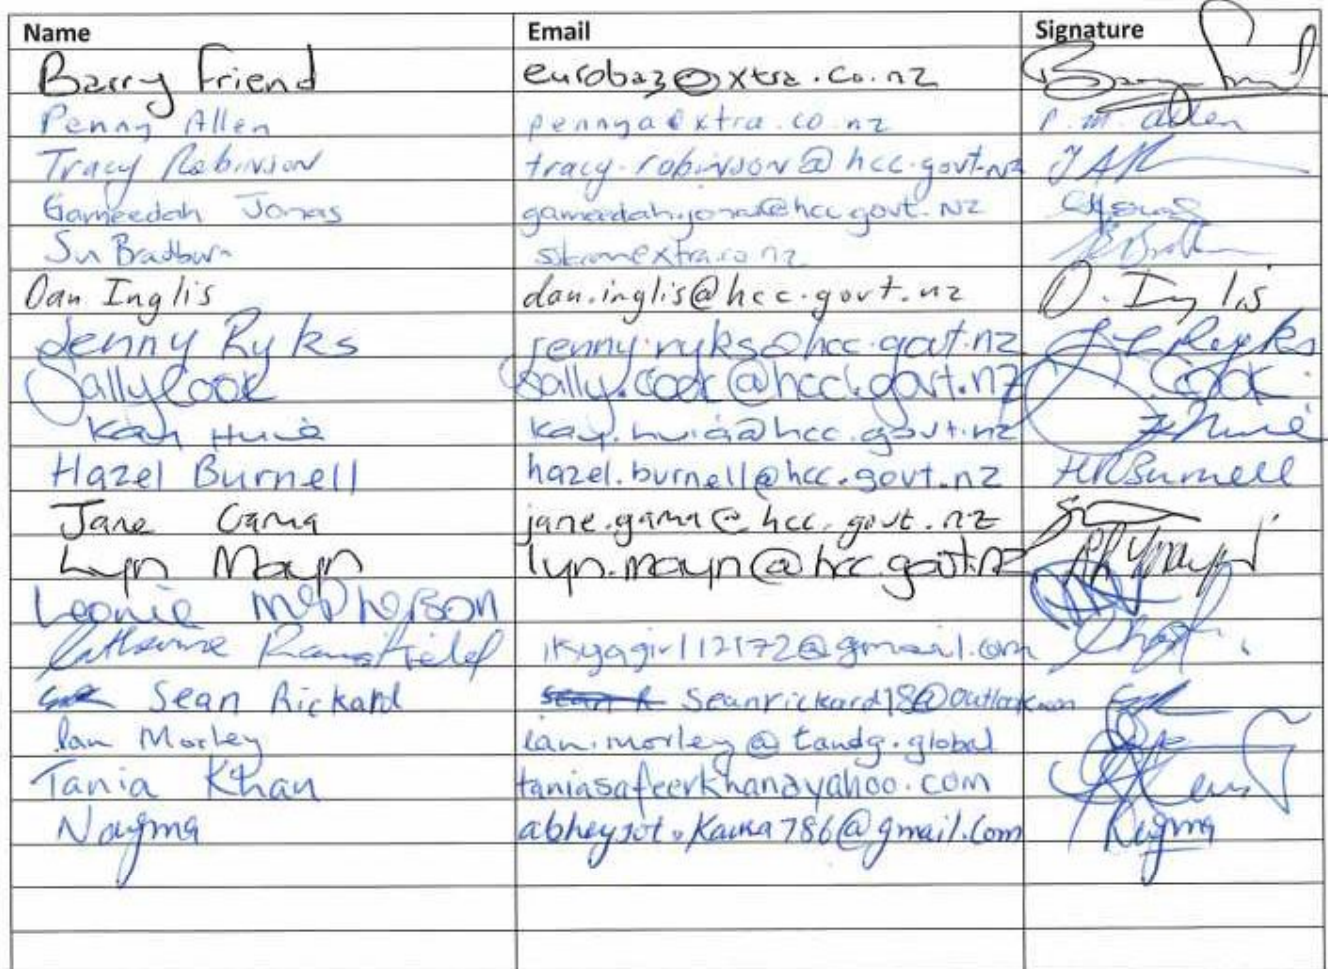 Name Email Signature
Barry Friend eurobaz@xtra.co.nz
Penny Allen pennya@xtra.co.nz P. M. Allen
Tracy Robinson tracy.robinson@hcc.govt.nz
Gameedah Jonas gameedah.jonas@hcc.govt.nz
Su Bradburn
Dan Inglis dan.inglis@hcc.govt.nz D. Inglis
Jenny Ryks jenny.ryks@hcc.govt.nz Ryks
Sally Cook sally.cook@hcc.govt.nz Cook
Kay Huia kay.huia@hcc.govt.nz
Hazel Burnell hazel.burnell@hcc.govt.nz HRBurnell
Jane Gama jane.gama@hcc.govt.nz
Lyn Mayn lyn.mayn@hcc.govt.nz
Leonie McPherson
Catherine ikyagirl12172@gmail.com
Sean Rickard Seanrickard18@outlook.com
Ian Morley ian.morley@tandg.global
Tania Khan taniasafeerkhan@yahoo.com
Nagma Nagma